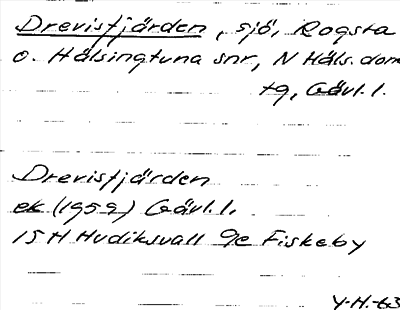 Drevisfjärden, sjö, Rogsta
o. Hälsingtuna snr, N Häls. dom
tg, Gävl. l.
Drevisfjärden
ek (1959) Gävl. l.
15 H Hudiksvall 9c Fiskeby
Y-H.-63